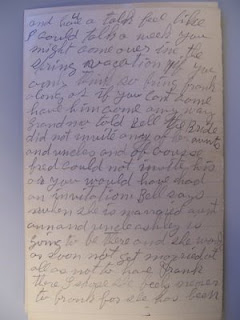 and have a talk feel like
I could talk a week you
might come over in the
spring vacation if you
only time so bring frank
along or if you cant come
have him come any way
Grandma told Bell the Bride
did not invite any of her aunts
and uncles and of course
fred could not invite his
or you would have had
an invitation Bell says
when she is married aunt
ann and uncle ashley is
going to be there and she wont
or
even not get married
at
all as not to have Frank
there I
she feels nearer
to frank for she has been